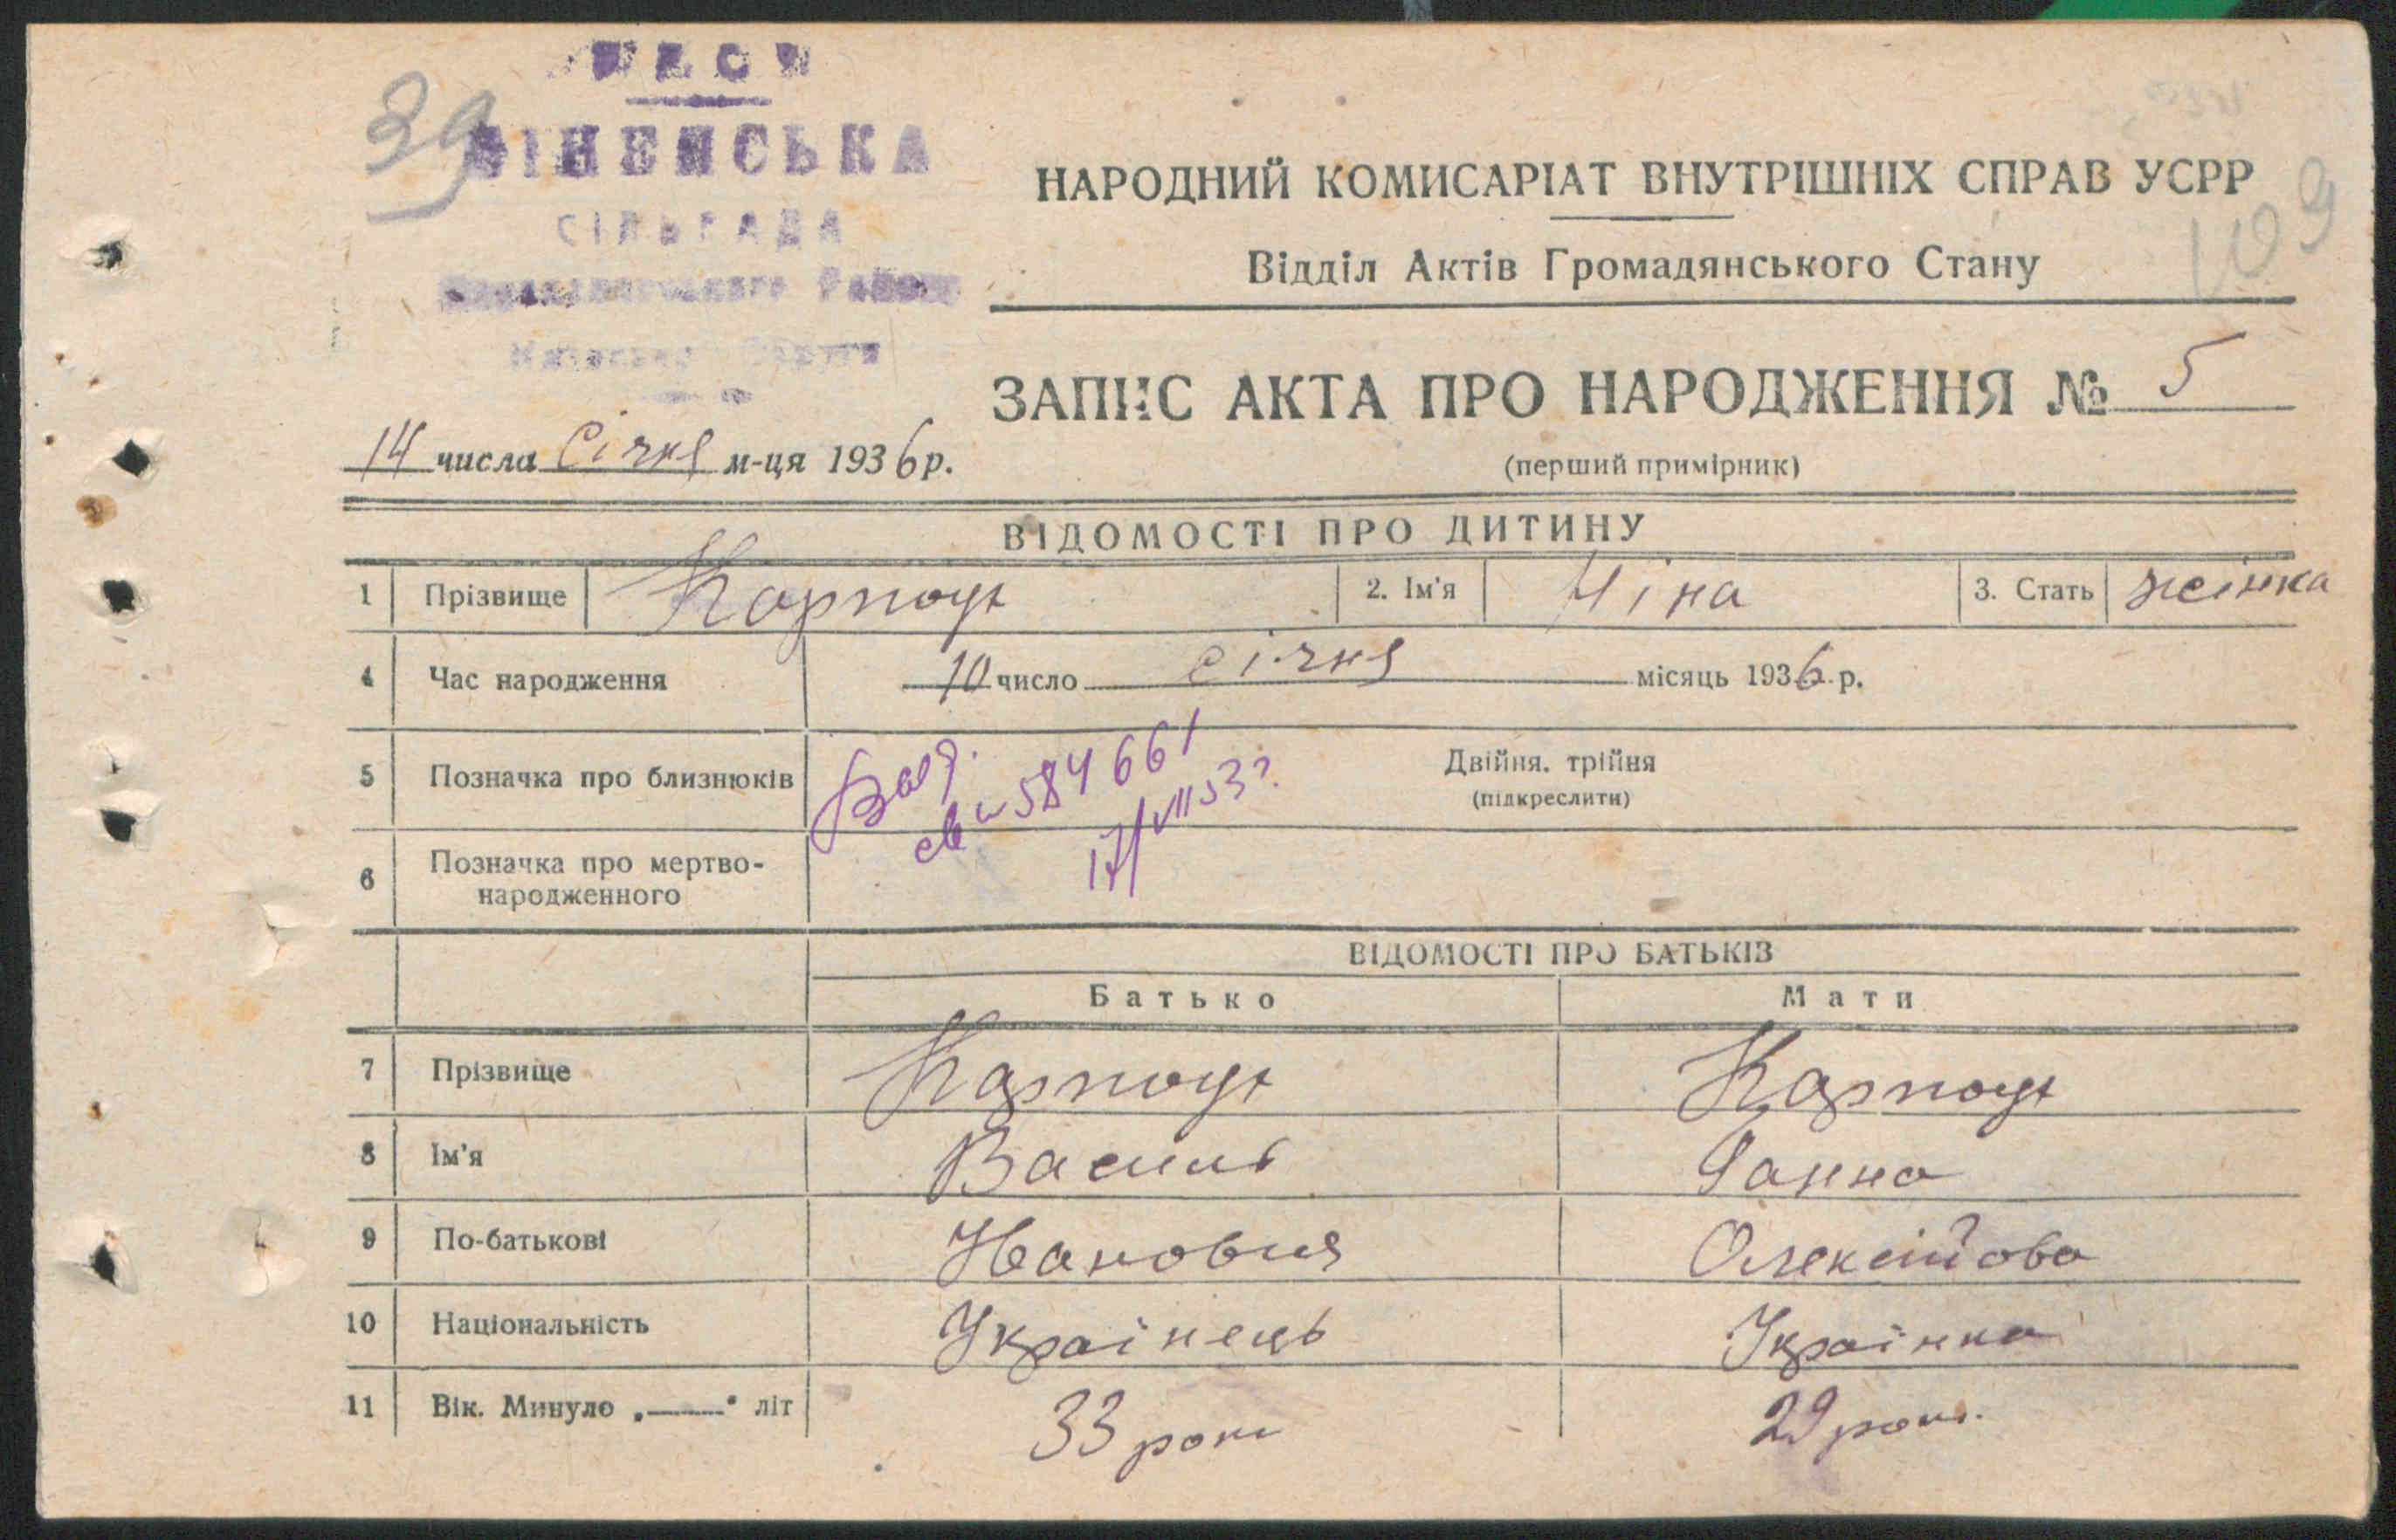 39
СІЛЬРАДА
НАРОДНИЙ КОМИСАРІАТ ВНУТРІШНІХ СПРАВ УСРР
109
Відділ Актів Громадянського Стану
ЗАПИС АКТА ПРО НАРОДЖЕННЯ № 5
14 числа Січня м-ця 1936 р.
(перший примірник)
ВІДОМОСТІ ПРО ДИТИНУ
1 Прізвище Карпоук 2. Ім'я Ніна 3. Стать жінка
4 Час народження 10 число січня місяць 1936 р.
5 Позначка про близнюків Двійня, трійня
(підкреслити)
584661
17/VII 53 г.
6 Позначка про мертво-
народженного
ВІДОМОСТІ ПРО БАТЬКІВ
Батько Мати
7 Прізвище Карпоук Карпоук
8 Ім'я Василь Ганна
9 По-батькові Іванович Олексійова
10 Національність Українець Українка
11 Вік. Минуло „——" літ 33 роки 29 рок.